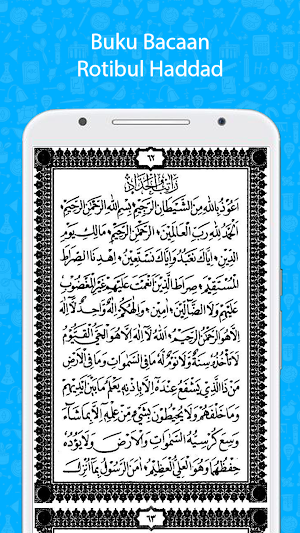 Buku Bacaan
Rotibul Haddad
٦٢
راتب الحداد
اَعُوْذُ بِاللهِ مِنَ الشَّيْطَانِ الرَّجِيْمِ، بِسْمِ اللهِ الرَّحْمٰنِ الرَّحِيْمِ،
اَلْحَمْدُ لِلّٰهِ رَبِّ الْعَالَمِيْنَ، الرَّحْمٰنِ الرَّحِيْمِ، مَالِكِ يَوْمِ
الدِّيْنِ، اِيَّاكَ نَعْبُدُ وَاِيَّاكَ نَسْتَعِيْنُ، اِهْدِنَا الصِّرَاطَ
الْمُسْتَقِيْمَ، صِرَاطَ الَّذِيْنَ اَنْعَمْتَ عَلَيْهِمْ غَيْرِ الْمَغْضُوْبِ
عَلَيْهِمْ وَلَا الضَّالِّيْنَ، اٰمِيْنَ، وَاِلٰهُكُمْ اِلٰهٌ وَاحِدٌ لَا اِلٰهَ
اِلَّا هُوَ الرَّحْمٰنُ الرَّحِيْمُ، اَللهُ لَا اِلٰهَ اِلَّا هُوَ الْحَيُّ الْقَيُّوْمُ
لَا تَأْخُذُهُ سِنَةٌ وَلَا نَوْمٌ لَهُ مَا فِى السَّمٰوَاتِ وَمَا فِى الْاَرْضِ
مَنْ ذَا الَّذِيْ يَشْفَعُ عِنْدَهُ اِلَّا بِاِذْنِهِ يَعْلَمُ مَا بَيْنَ اَيْدِيْهِمْ
وَمَا خَلْفَهُمْ وَلَا يُحِيْطُوْنَ بِشَيْءٍ مِنْ عِلْمِهِ اِلَّا بِمَا شَاءَ
وَسِعَ كُرْسِيُّهُ السَّمٰوَاتِ وَالْاَرْضَ وَلَا يَؤُدُهُ
حِفْظُهُمَا وَهُوَ الْعَلِيُّ الْعَظِيْمُ، اٰمَنَ الرَّسُوْلُ بِمَا اُنْزِلَ
٦٣